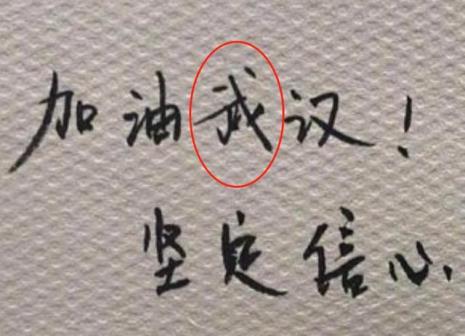 加油武汉！
坚定信心